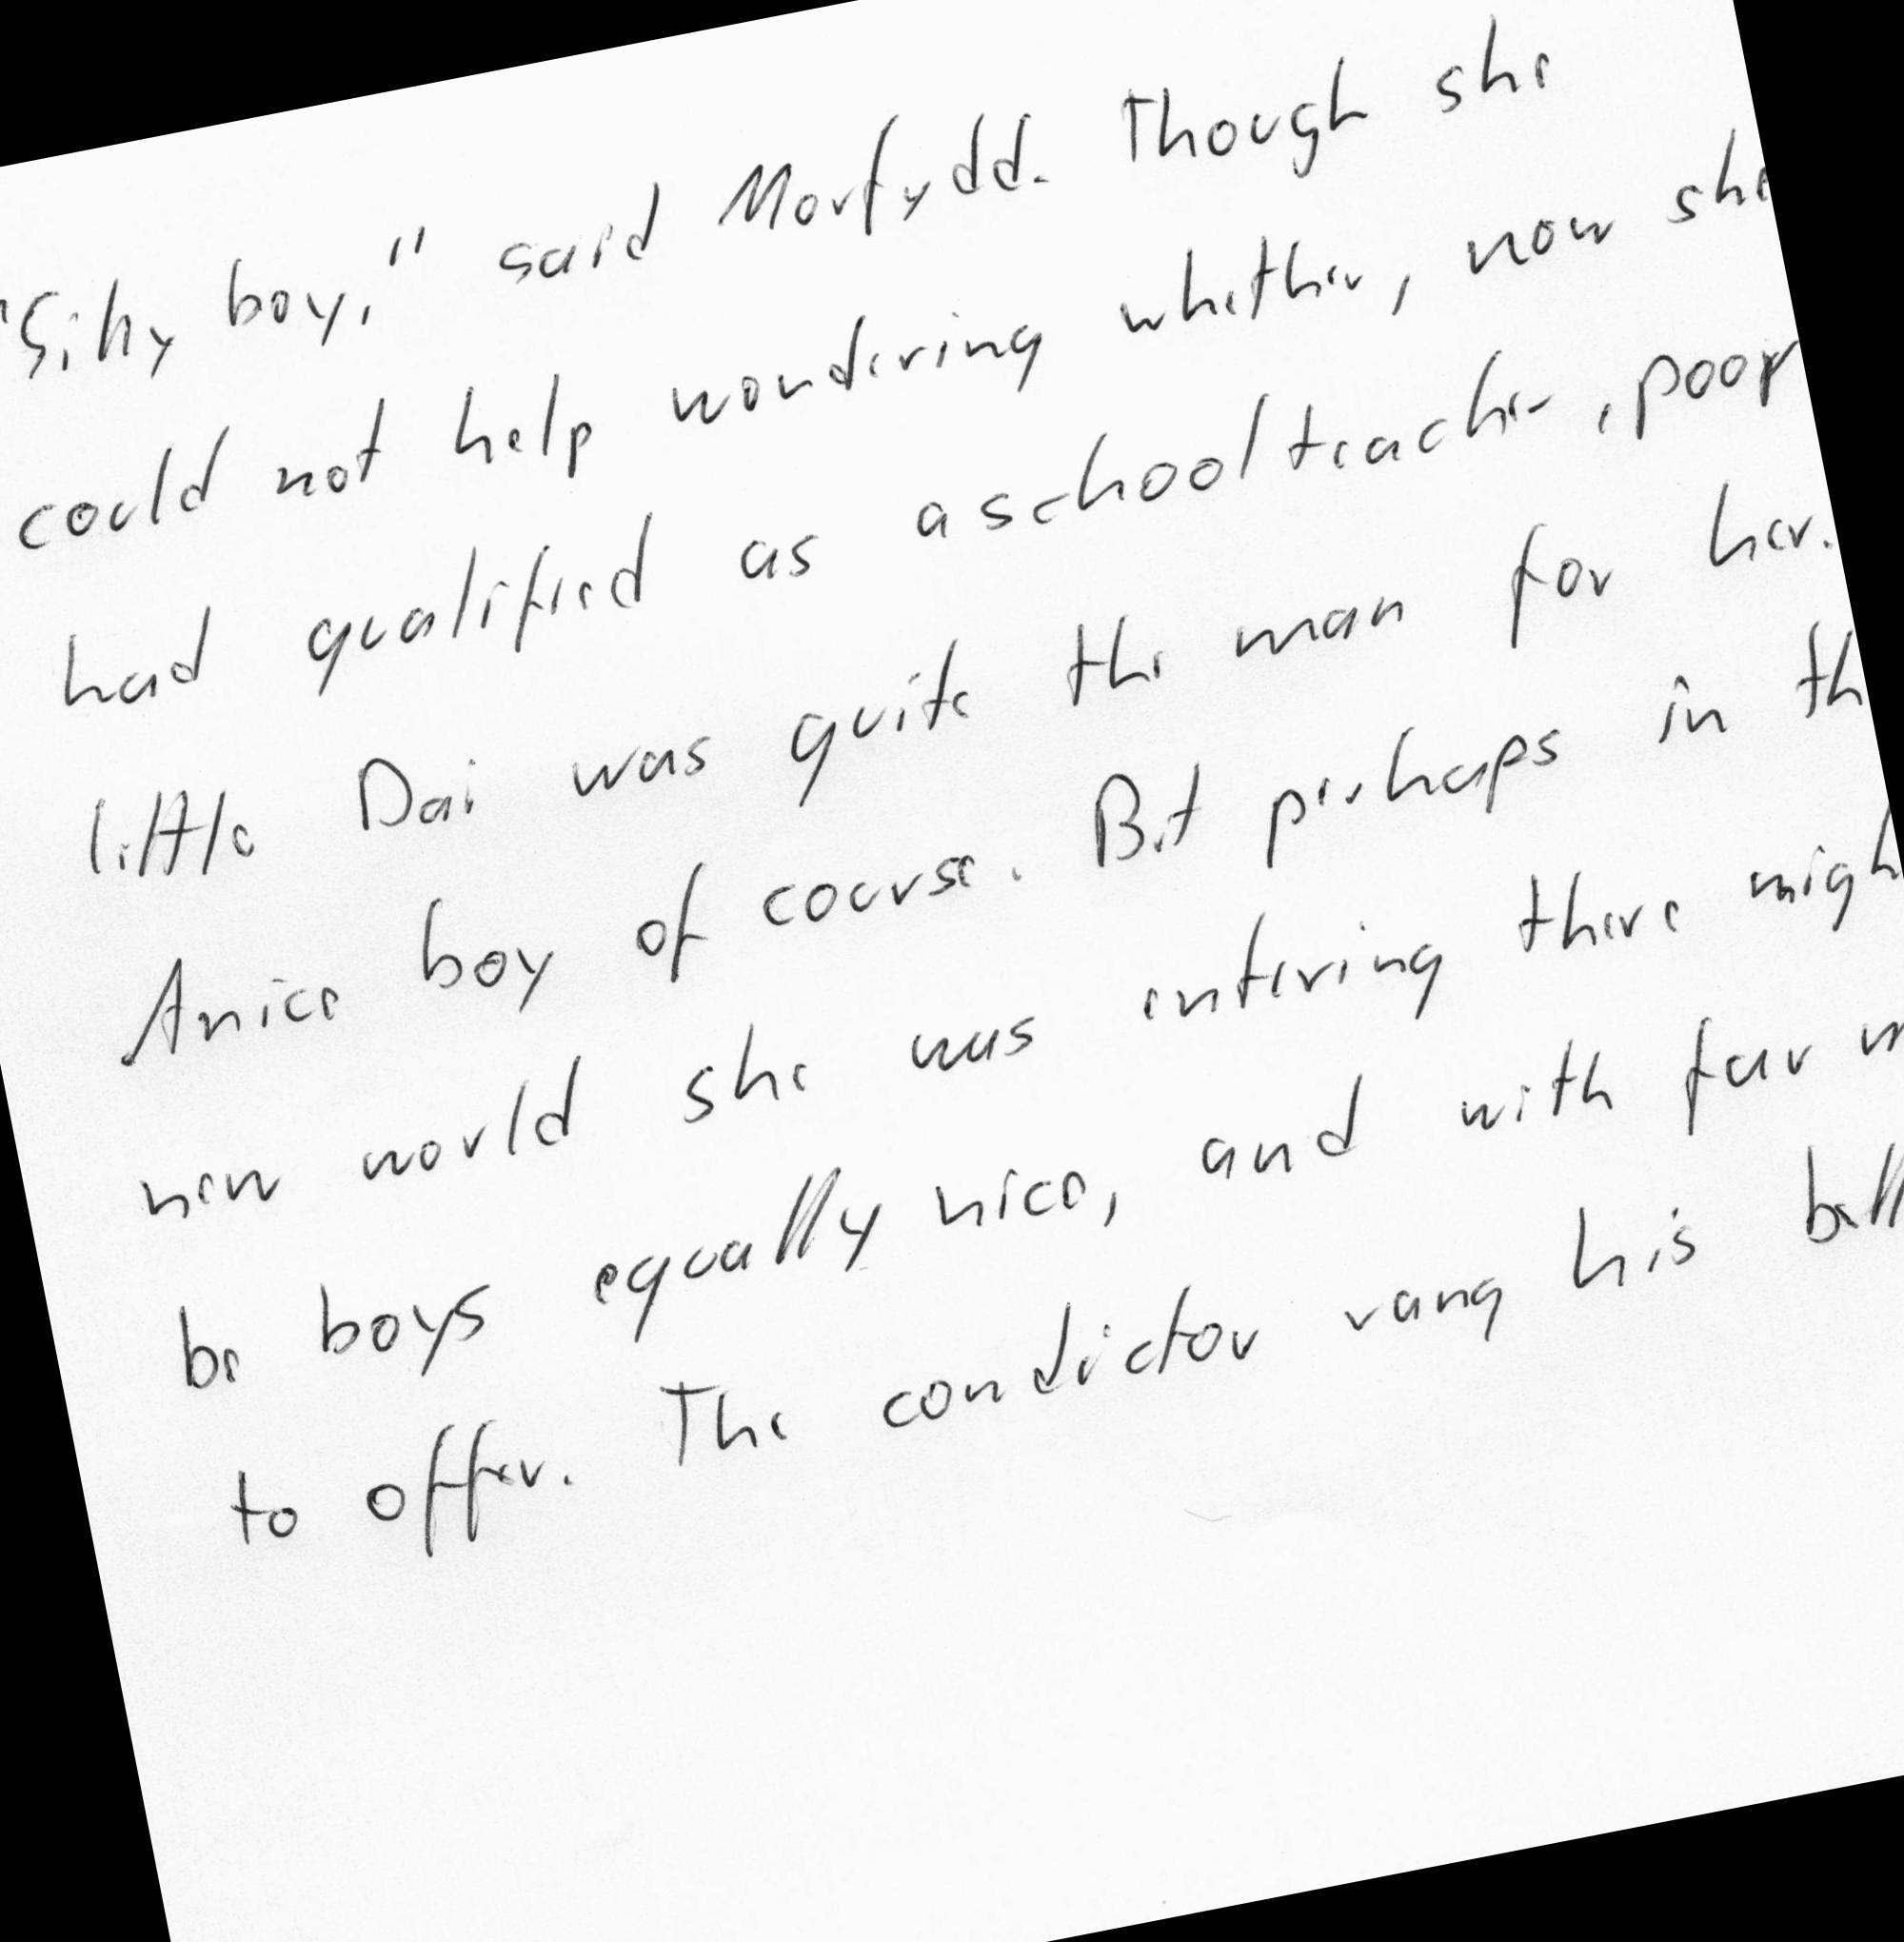 "Silly boy," said Morfydd. Though she
could not help wondering whether, now she
had qualified as a schoolteacher, poor
little Dai was quite the man for her.
A nice boy of course. But perhaps in th
new world she was entering there migh
be boys equally nice, and with far m
to offer. The conductor rang his bell